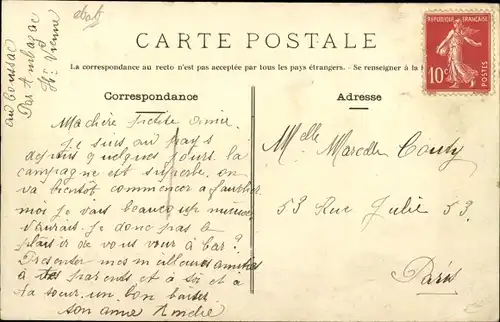 au boussac
Par Ambazac
Hte Vienne
CARTE POSTALE
La correspondance au recto n'est pas acceptée par tous les pays étrangers. — Se renseigner à la
REPUBLIQUE FRANÇAISE
10c
POSTES
Correspondance
Adresse
Ma chère petite amie
Je suis au pays
depuis quelques jours la
campagne est superbe on
va bientot commencer a
moi je vais beaucoup mieux
n'aurais je donc pas le
plaisir de vous voir à bar?
Presenter mes meilleures amitiés
à tes parents et à toi et a
ta soeur un bon baiser
ton amie
Melle Marcelle Couty
53 Rue Julie 53.
Paris